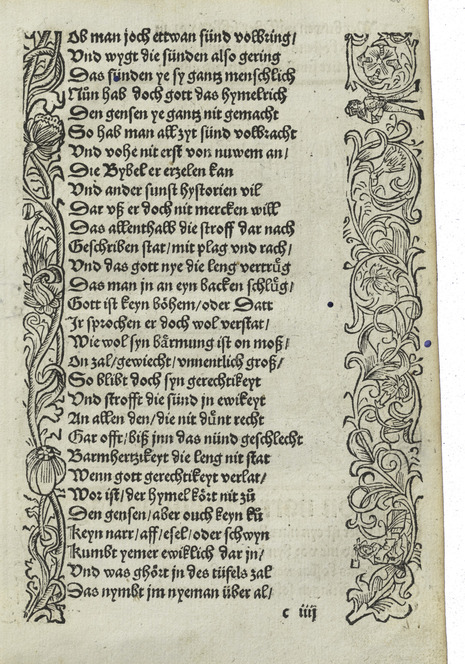 Ob man joch ettwan sünd volbring/
Vnd wygt die sünden also gering
Das sünden ye sy gantz menschlich
Nůn hab doch gott das hymelrich
Den gensen ye gantz nit gemacht
So hab man allzyt sünd volbracht
Vnd vohe nit erst von nuwem an/
Die Bybel er erzelen kan
Vnd ander sunst hystorien vil
Dar vß er doch nit mercken will
Das allenthalb die stroff dar nach
Geschriben stat/mit plag vnd rach/
Vnd das gott nye die leng vertrůg
Das man jn an eyn backen schlůg/
Gott ist keyn böhem/oder Datt
Jr sprochen er doch wol verstat/
Wie wol syn bärmung ist on moß/
On zal/gewiecht/vnnentlich groß/
So blibt doch syn gerechtikeyt
Vnd strofft die sünd jn ewikeyt
An allen den/die nit důnt recht
Gar offt/biß jnn das nünd geschlecht
Barmhertzikeyt die leng nit stat
Wenn gott gerechtikeyt verlat/
Wor ist/der hymel hört nit zů
Den gensen/aber ouch keyn ků
Keyn narr/aff/esel/oder schwyn
Kumbt yemer ewiklich dar jn/
Vnd was ghört jn des tüfels zal
Das nymbt jm nyeman über al/
c iiij